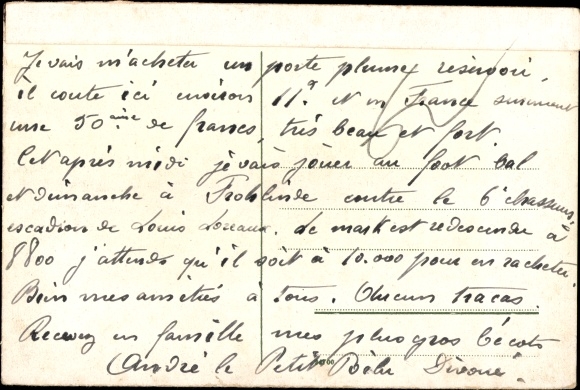 Je vais m'acheter un porte plume réservoir,
il coute ici environ 11f. et en France surement
une 50aine de francs, très beau et fort.
Cet après midi je vais jouer au foot bal
et dimanche à Frohlinde contre le 6e chasseurs,
escadron de Louis Loreaux. Le mark est redescendu à
8800 j'attends qu'il soit à 10.000 pour en racheter.
Bien mes amitiés à tous. Aucun tracas.
Recevez en famille mes plus gros bécots
André le Petit